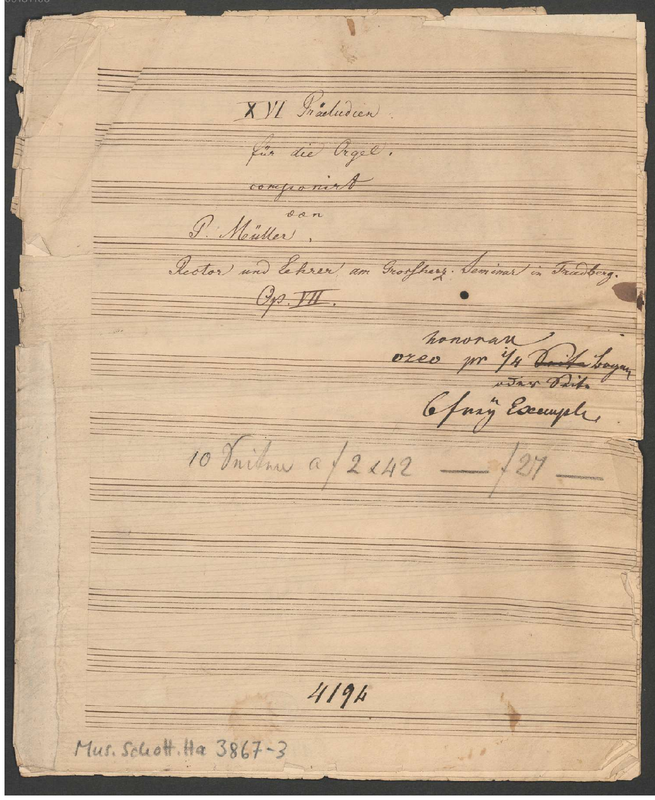 XVI Präludien.
für die Orgel.
componirt
von
P. Müller.
Rector und Lehrer am Grossherz. Seminar in Friedberg.
Op. VII.
honorar
pr 1/4 Seite bogen
oder Seite
6 freÿ Exempl.
10 Seiten a f 2 x 42 — f 27 —
4194
Mus. Schott. Ha 3867-3